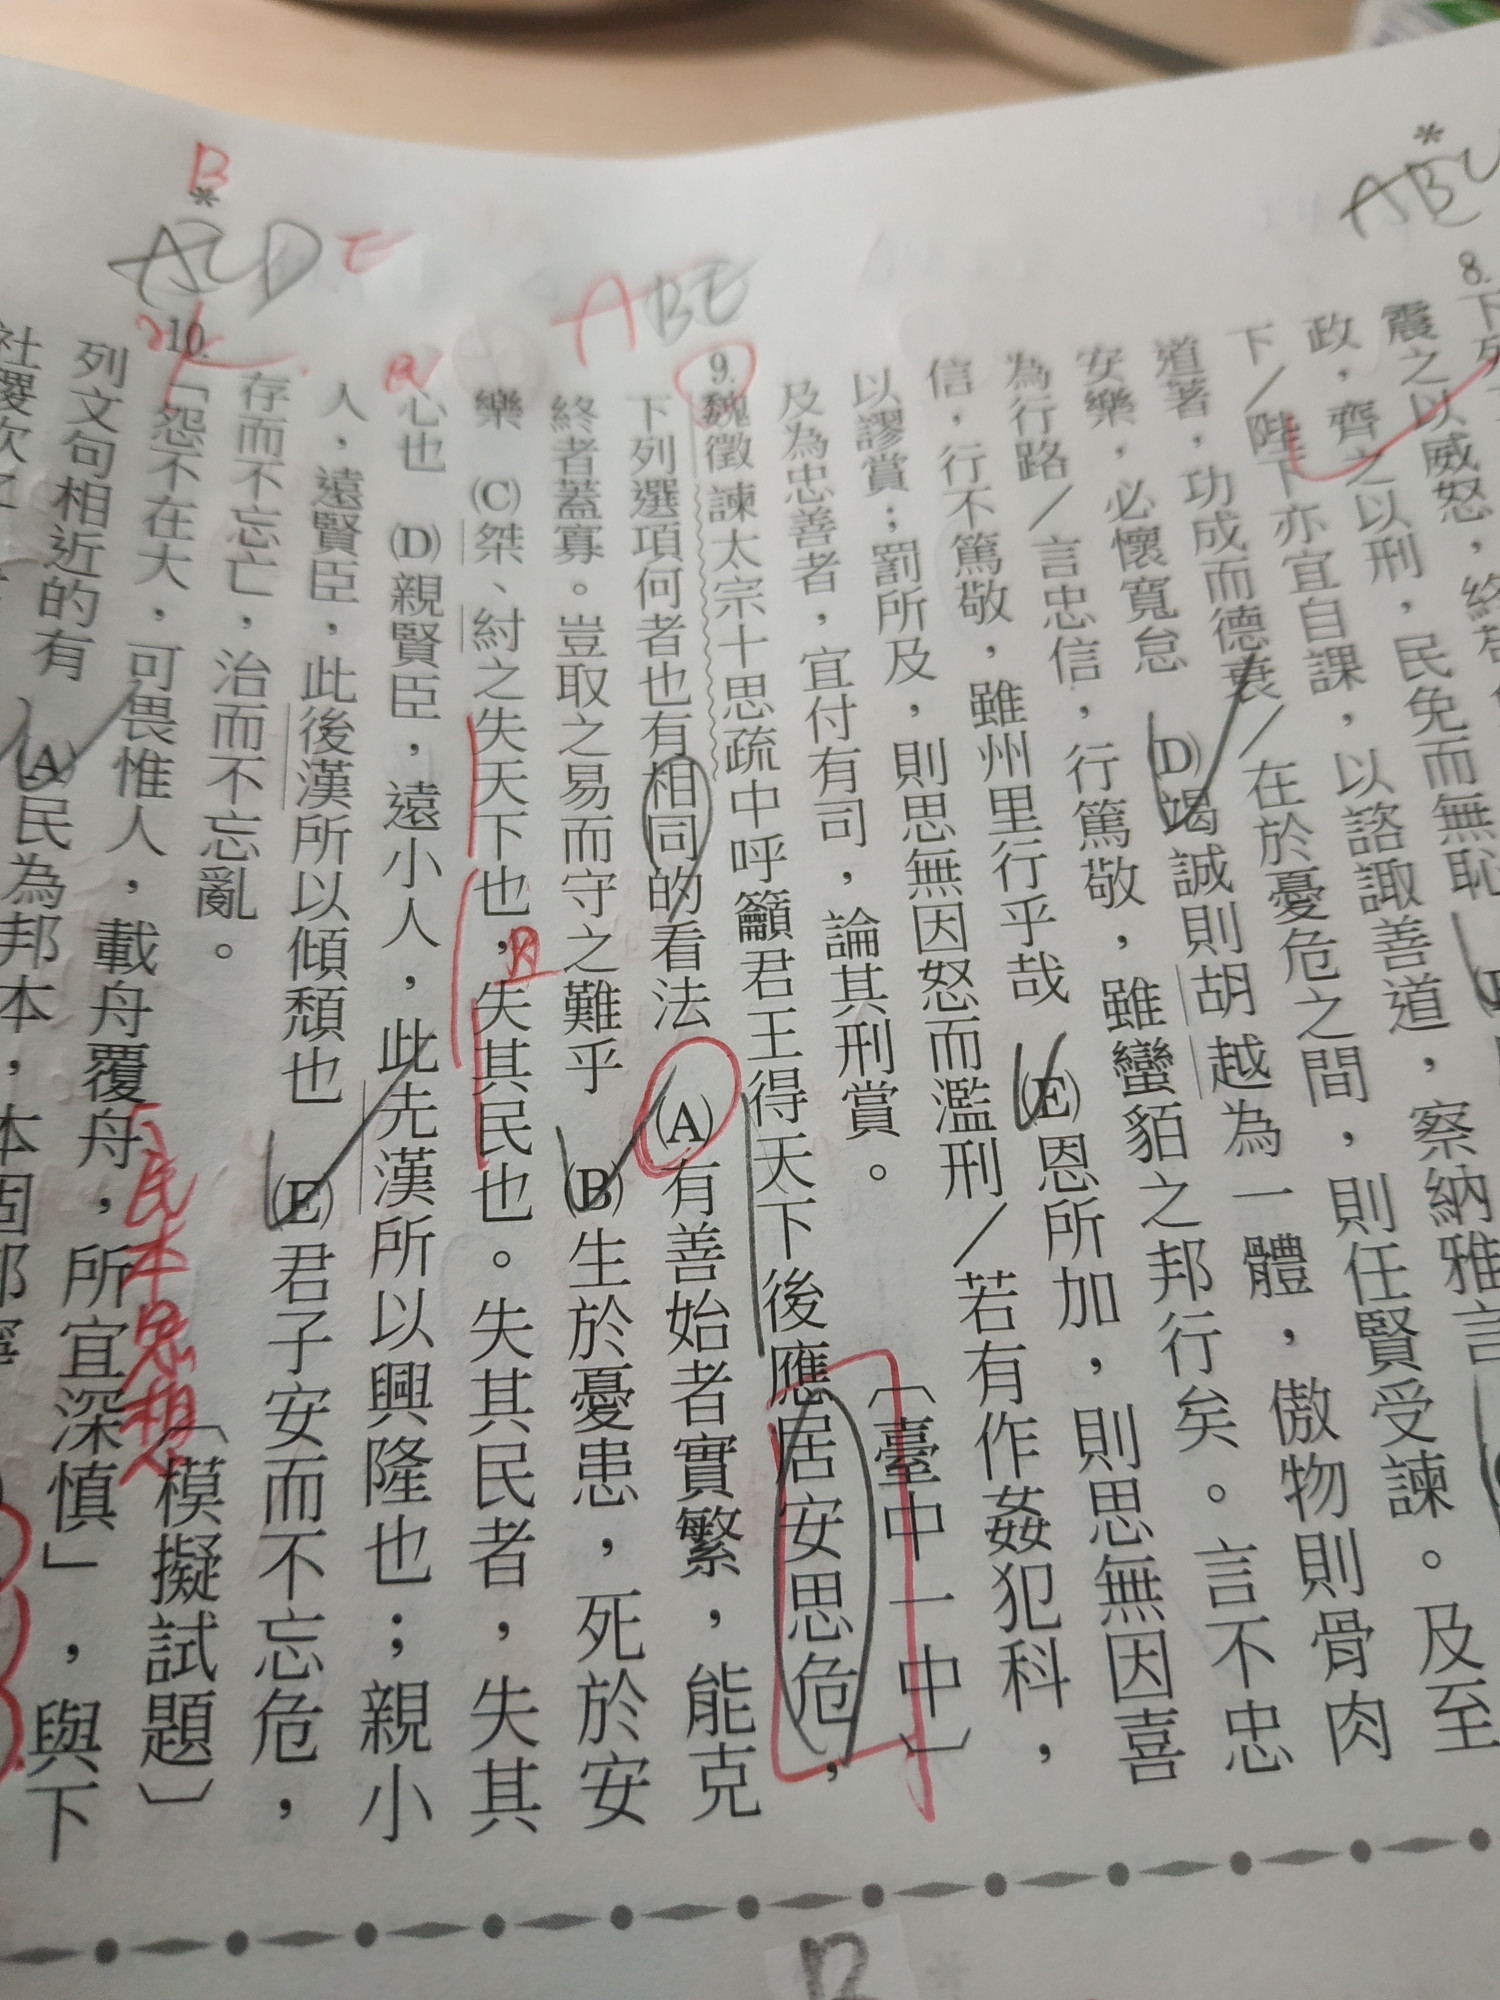 *
ABC
8.
震之以威怒,終
政,齊之以刑,民免而無恥
下/陛下亦宜自課,以諮諏善道,察納雅言
道著,功成而德衰/在於憂危之間,則任賢受諫。及至
安樂,必懷寬怠 (D)竭誠則胡越為一體,傲物則骨肉
為行路/言忠信,行篤敬,雖蠻貊之邦行矣。言不忠
信,行不篤敬,雖州里行乎哉 (E)恩所加,則思無因喜
以謬賞;罰所及,則思無因怒而濫刑/若有作姦犯科,
及為忠善者,宜付有司,論其刑賞。〔臺中一中〕
ABE
9.魏徵諫太宗十思疏中呼籲君王得天下後應居安思危,
下列選項何者也有相同的看法 (A)有善始者實繁,能克
終者蓋寡。豈取之易而守之難乎 (B)生於憂患,死於安
樂 (C)桀、紂之失天下也,失其民也。失其民者,失其
心也 (D)親賢臣,遠小人,此先漢所以興隆也;親小
人,遠賢臣,此後漢所以傾頹也 (E)君子安而不忘危,
存而不忘亡,治而不忘亂。〔模擬試題〕
B
*
ACD E
10.「怨不在大,可畏惟人,載舟覆舟,所宜深慎」,與下
民本思想
列文句相近的有 (A)民為邦本,本固邦寧
社稷次之